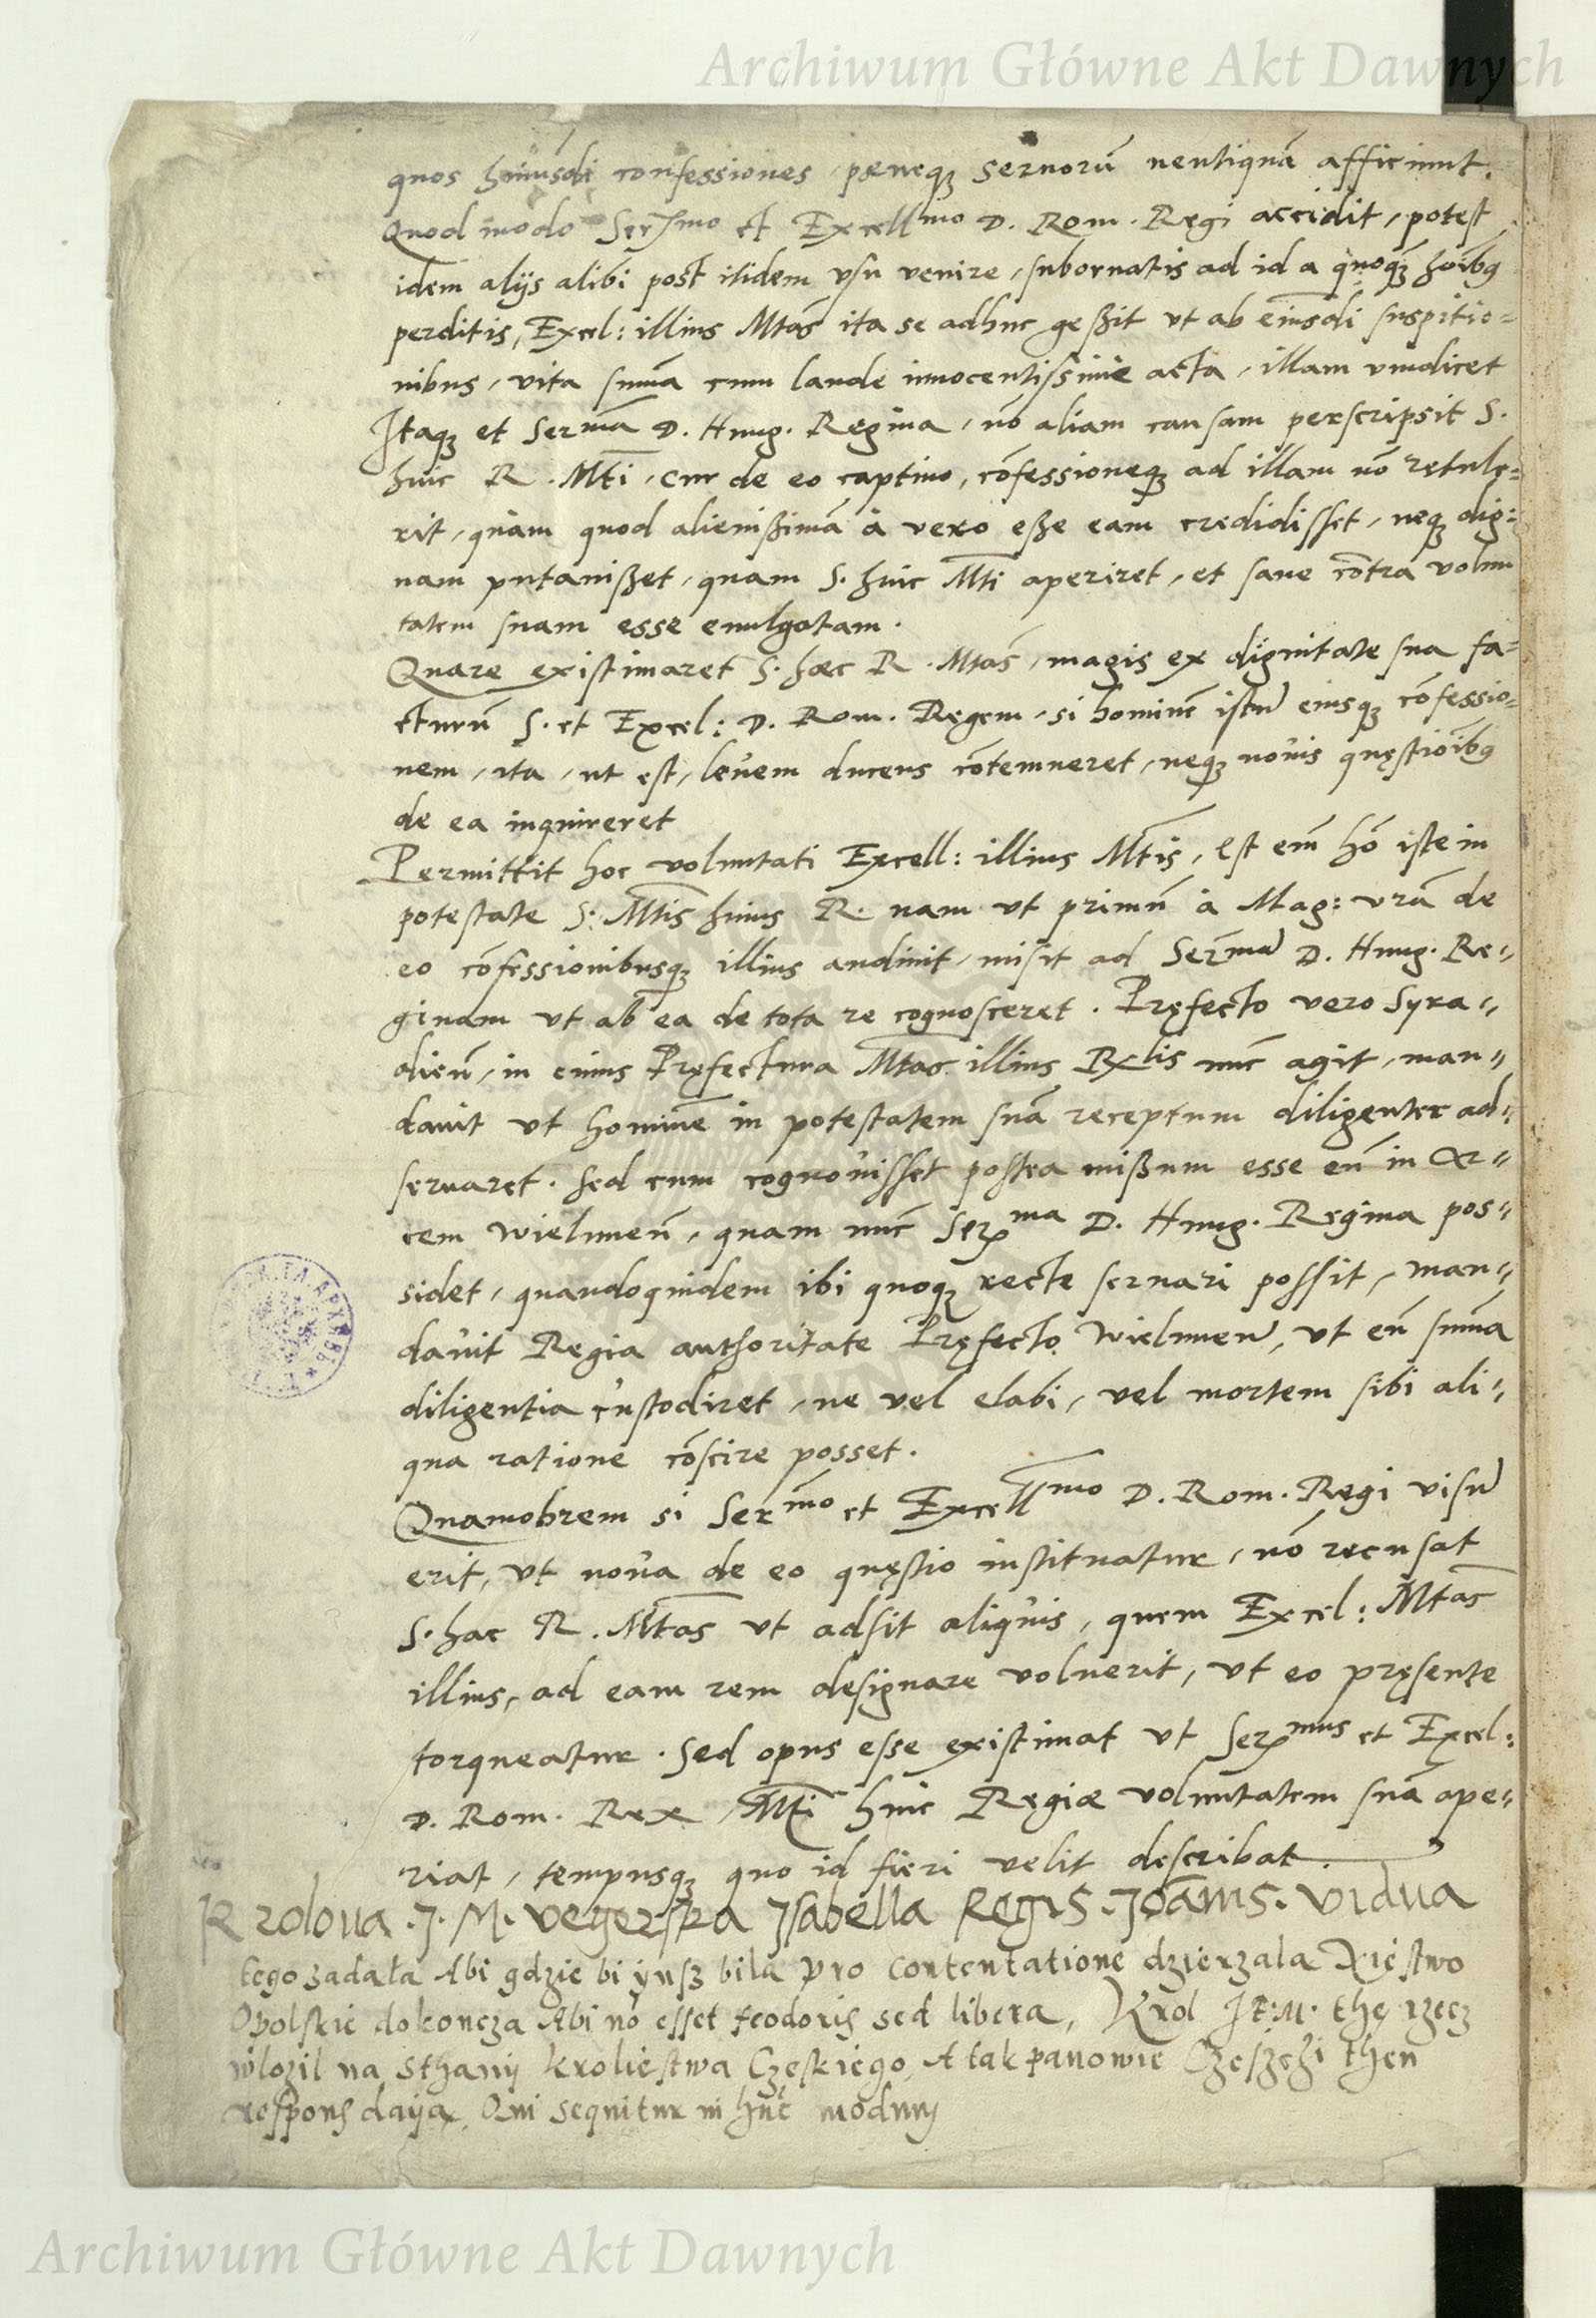 Archiwum Główne Akt Dawnych
quos huiusdi confessiones, pæneq; seruorũ neutiquã afficiunt.
Quod modo Serssmo et Excellmo D. Rom. Regi accidit, potest
idem alijs alibi post itidem vsu venire, subornatis ad id a quoq; hoĩbq
perditis, Excel: illius Mtas ita se adhuc geßit vt ab eiusdi suspitio=
nibus, vita suma cum laude innocentissimè acta, illam vindicet
Itaq; et Sermã D. Hung. Regina, nõ aliam causam perscripsit S.
huic R. Mti, cur de eo captiuo, cõfessioneq; ad illam nõ retule=
rit, quàm quod alienißimã à vero eße eam credidisset, neq; dig=
nam putauißet, quam S. huic Mti aperiret, et sane cõtra volun
tatem suam esse euulgatam.
Quare existimaret S. hæc R. Mtas, magis ex dignitate sua fa=
cturũ S. et Excel: D. Rom. Regem, si hominẽ istũ eiusq; cõfessio=
nem, ita, ut est, leuem ducens cõtemneret, neq; nouis quęstioĩbq
de ea inquireret
Permittit hoc voluntati Excell: illius Mtis, Est em̃ hõ iste in
potestate S. Mtis huius R. nam ut primũ à Mag: vrã de
eo cõfessionibusq; illius audiuit, misit ad Sermã D. Hung. Re=
ginam ut ab ea de tota re cognosceret. Pręfecto vero Syra=
dieñ, in cuius Pręfectura Mtas illius Rxlis nũc agit, man=
dauit ut hominẽ in potestatem suã receptum diligenter ad=
seruaret. Sed cum cognouisset postea mißum esse eũ in Ar=
cem Wieluneñ, quam nũc Serma D. Hung. Regina pos=
sidet, quandoquidem ibi quoq; recte seruari possit, man=
dauit Regia authoritate Pręfecto Wieluneñ, ut eũ sumã
diligentia custodiret, ne vel elabi, vel mortem sibi ali=
qua ratione cõscire posset.
Quamobrem si Sermo et Excellmo D. Rom. Regi visũ
erit, ut noua de eo quęstio instituatur, nõ recusat
S. hæc R. Mtas ut adsit aliquis, quem Excel: Mtas
illius, ad eam rem designare voluerit, ut eo pręsente
torqueatur. Sed opus esse existimat ut Sermus et Excel:
D. Rom. Rex Mti huic Regiæ voluntatem suã ape=
riat, tempusq; quo id fieri velit describat.
Krolova. J. M. Vegerska Jsabella Regis. Joãnis. Vidua
tego zadała Abi gdzie bi ynsz bila pro contentatione dzierzala Xięstwo
Opolskie dokoncza Abi nõ esset feodoris sed libera, Krol J K: M. thę rzecz
wlozil na Sthany krolięstwa Czeskiego, A tak panowie Czeszczi then
respons daya, Qui sequitur in hũc modum
Archiwum Główne Akt Dawnych